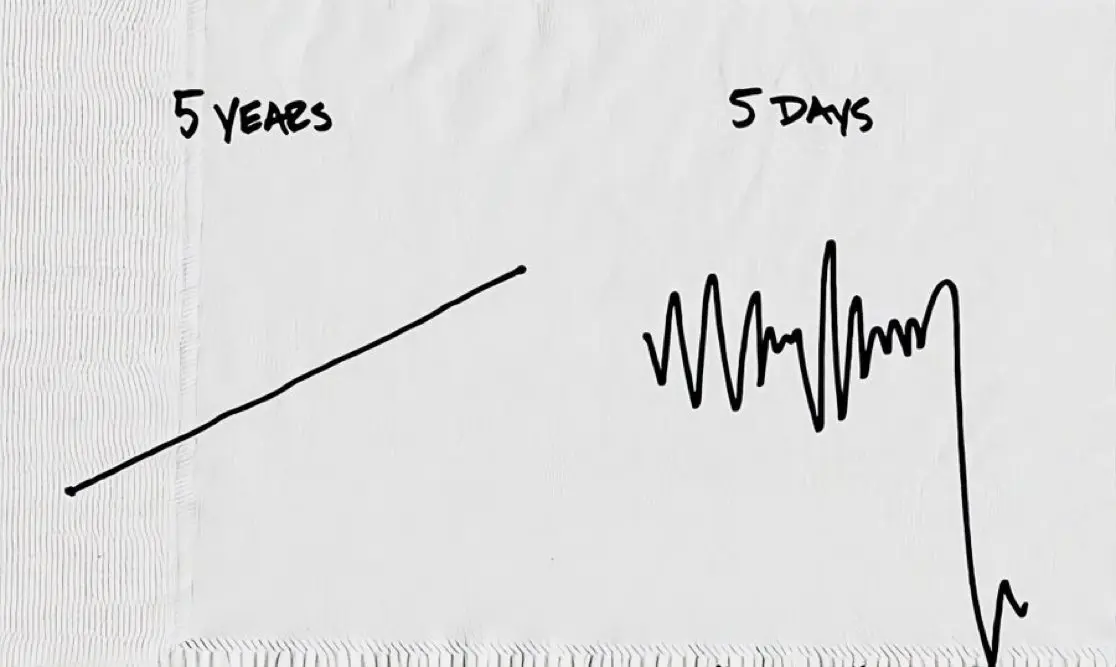 5 YEARS
5 DAYS